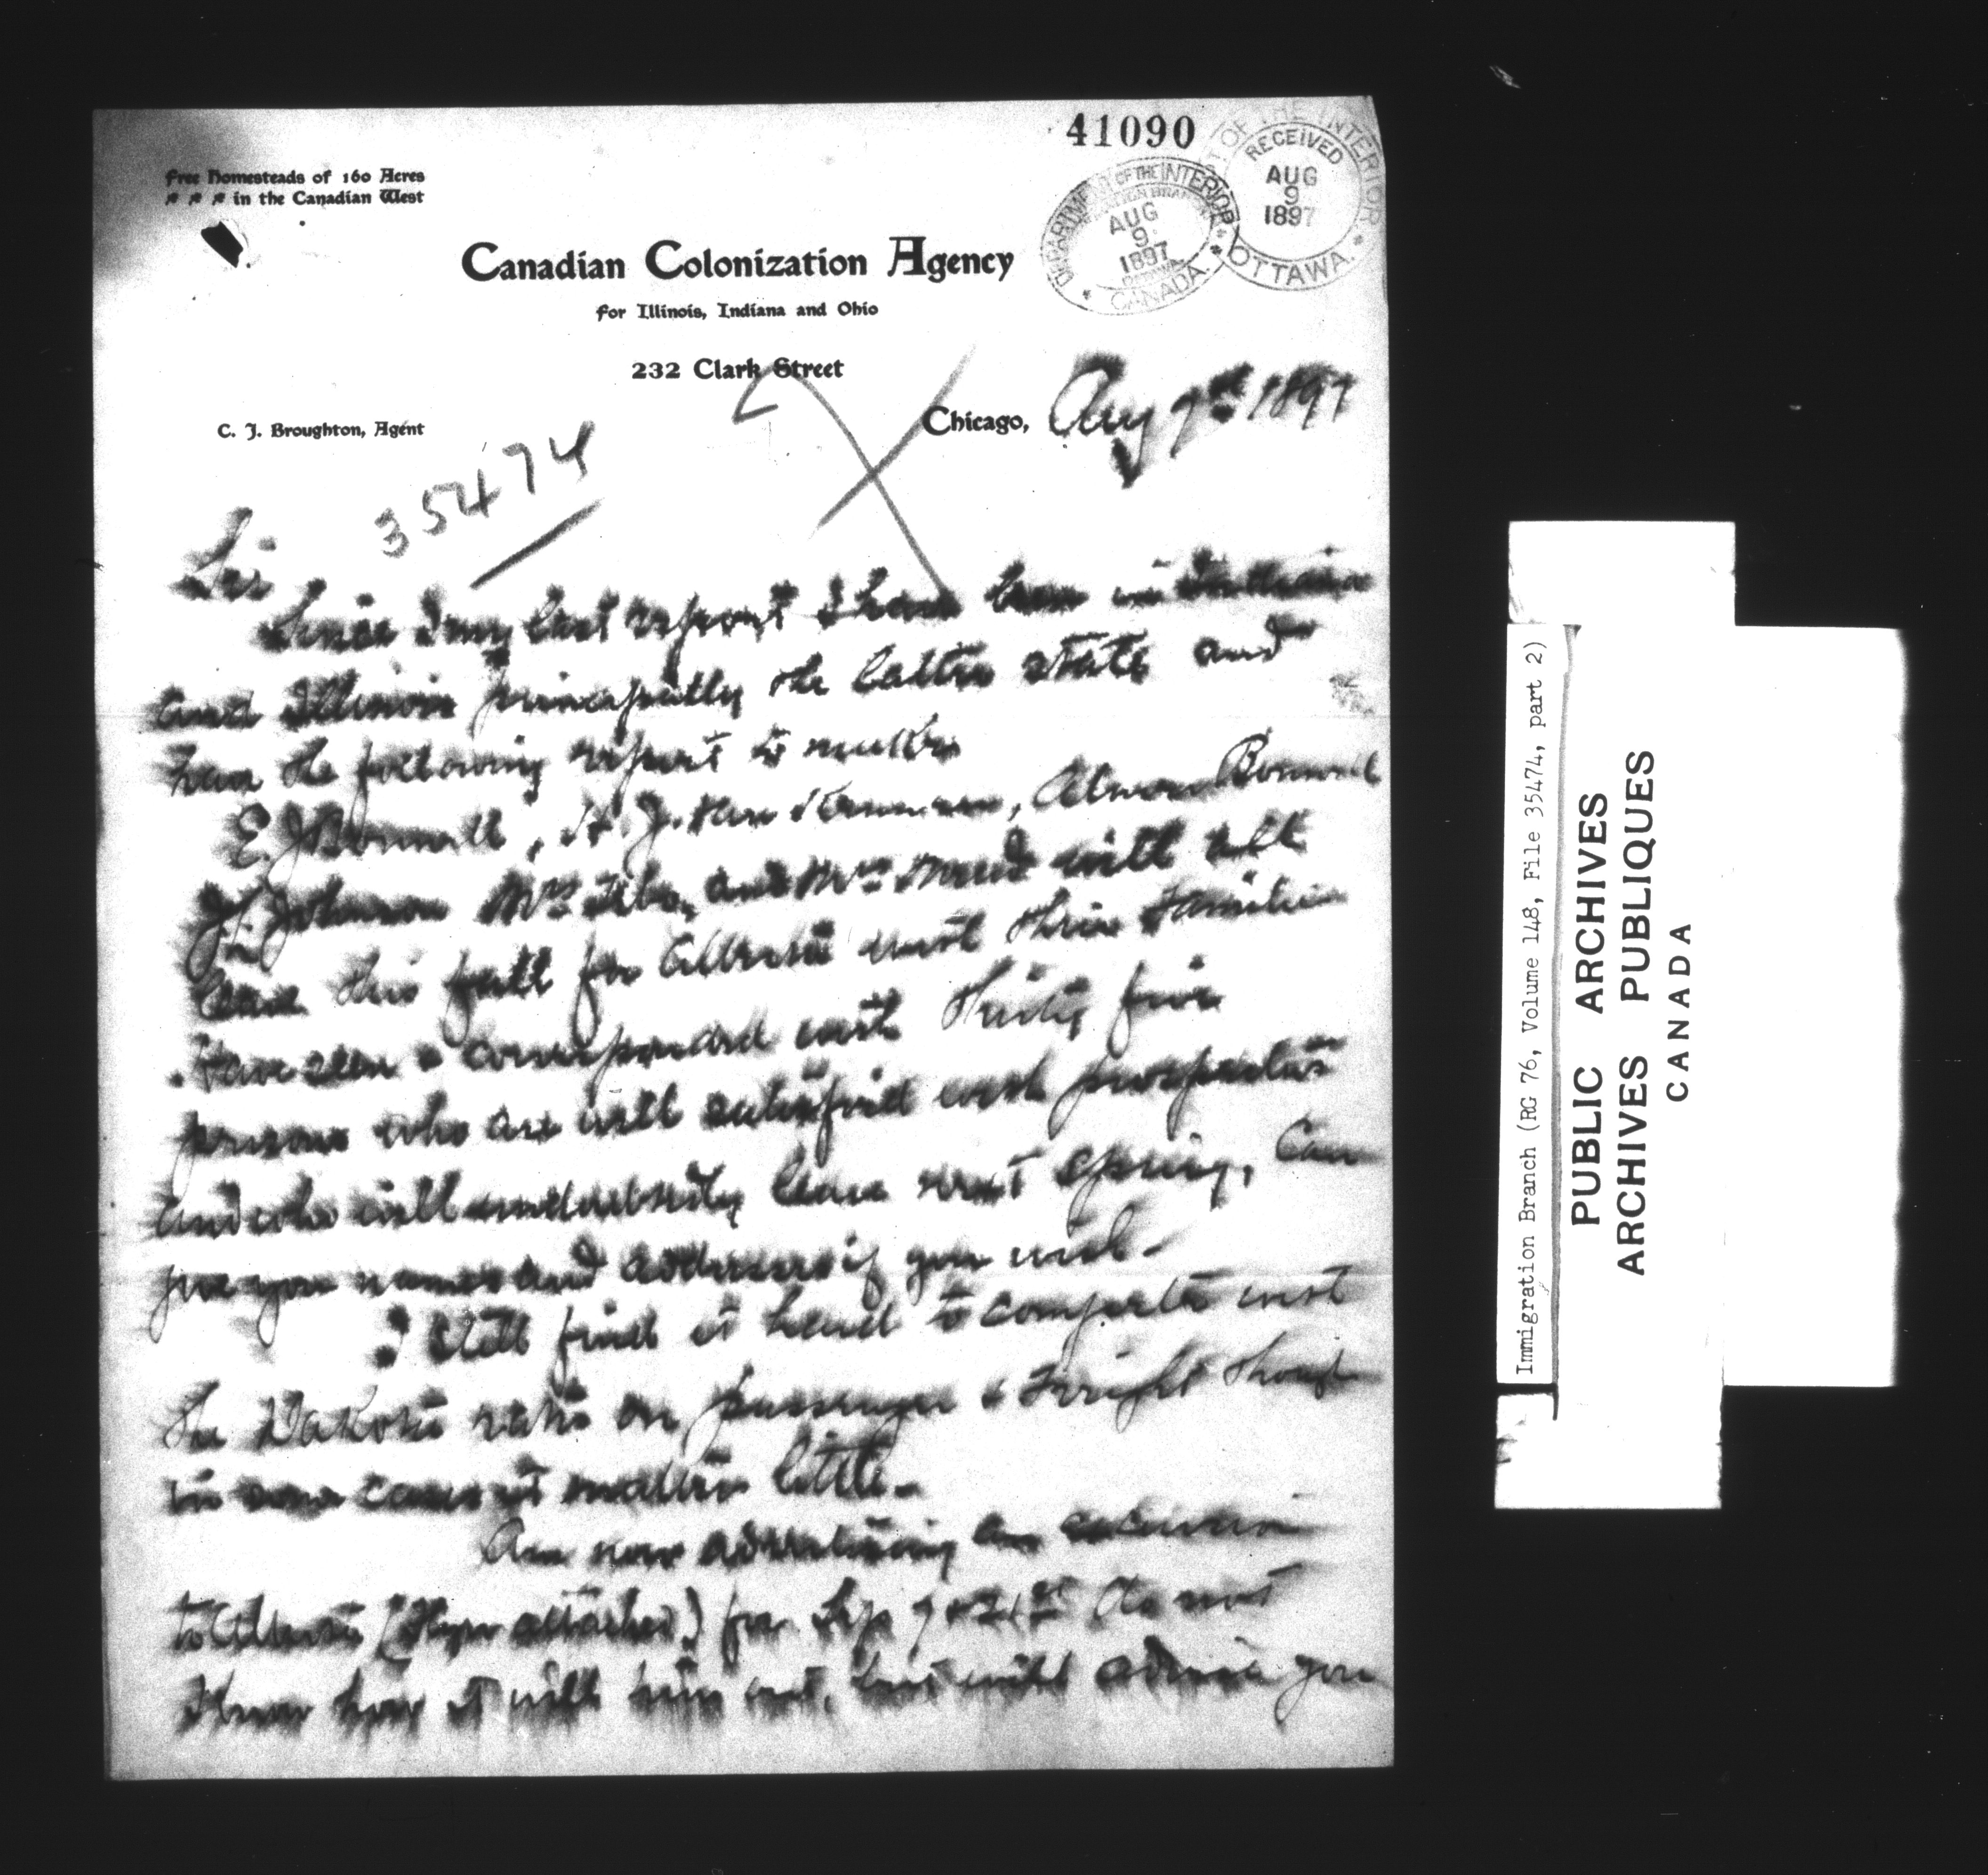 41090
DEPARTMENT OF THE INTERIOR
AUG
9
1897
CANADA.
OF THE INTERIOR
RECEIVED
AUG
9
1897
OTTAWA.
Free Homesteads of 160 Acres
in the Canadian West
Canadian Colonization Agency
for Illinois, Indiana and Ohio
232 Clark Street
C. J. Broughton, Agent
Chicago, Aug 7th 1897
35474
Sir
Since my last report I have been in Indiana
and Illinois principally the latter state and
have the following report to make
E. J Bonnell, Bonnell
J Johnson Mrs and Mrs will all
leave this fall for Alberta with their families
Have seen & correspond with thirty five
persons who are well satisfied with prospectus
and who will undoubtedly leave next spring, Can
give you names and addresses if you wish -
I still find it hard to compete with
the Dakota rate on passenger & freight though
in some cases it matters little -
Am now advertising an excursion
to Alberta (Flyer attached) for Sep 7 & 21st Do not
know how it will turn out, but will advise you
Immigration Branch (RG 76, Volume 148, File 35474, part 2)
PUBLIC ARCHIVES
ARCHIVES PUBLIQUES
CANADA